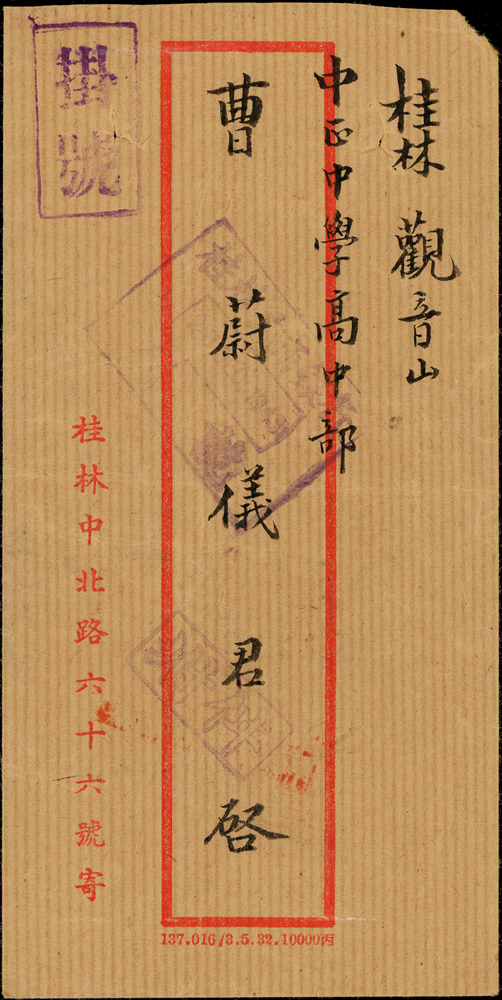 桂林觀音山
中正中學高中部
曹蔚儀君啓
掛號
桂林中北路六十六號寄
137.016/3.5.32.10000丙